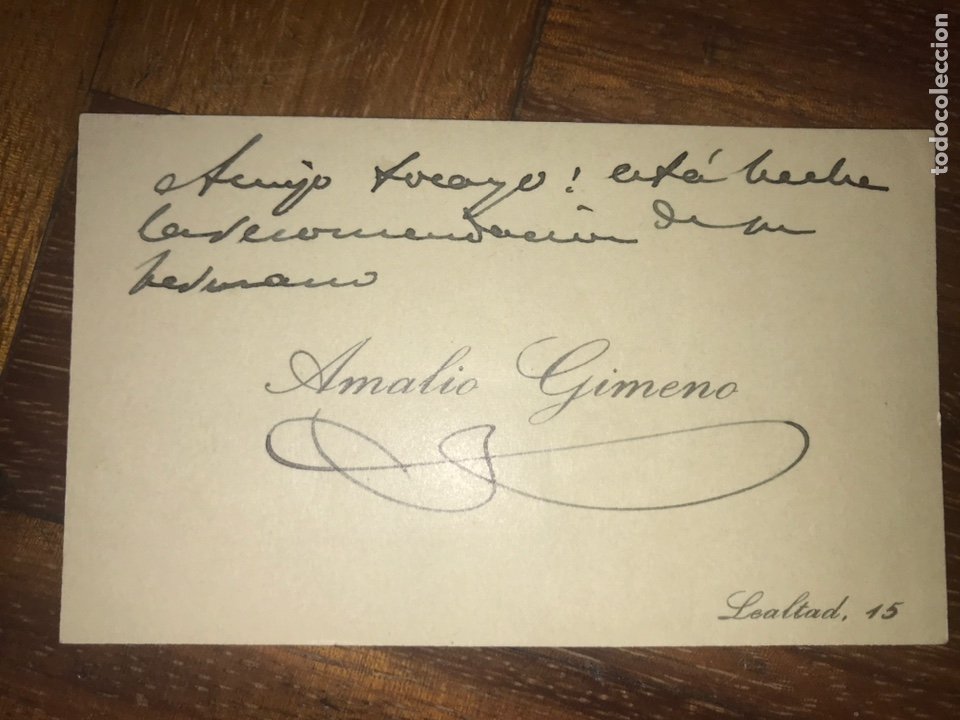 Amigo tocayo: está hecha
la recomendación de su
hermano
Amalio Gimeno
Lealtad, 15
todocoleccion